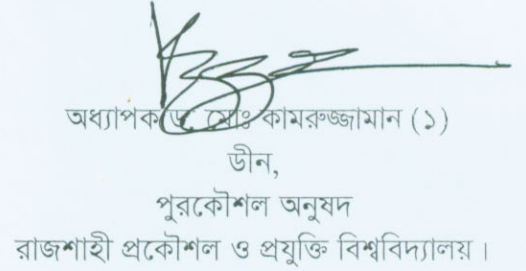 অধ্যাপক ড. মোঃ কামরুজ্জামান (১)
ডীন,
পুরকৌশল অনুষদ
রাজশাহী প্রকৌশল ও প্রযুক্তি বিশ্ববিদ্যালয়।